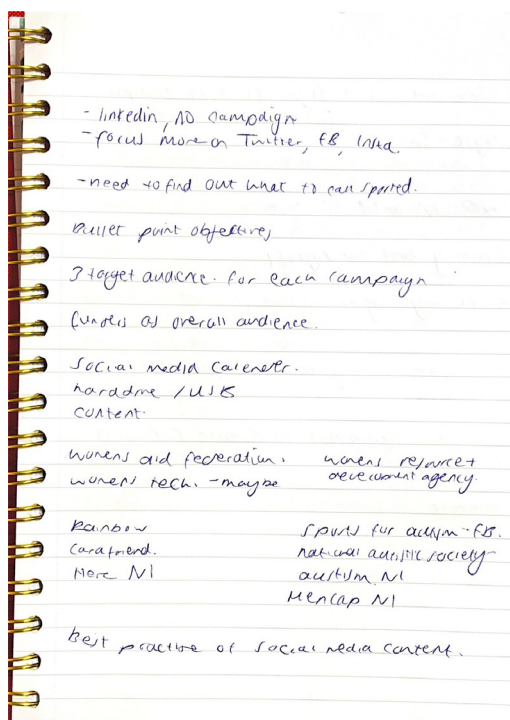 - linkedin, NO campaign
- focus more on Twitter, FB, Insta.
- need to find out what to call sported.
Bullet point objectives
3 target audience. for each campaign
funders as overall audience.
Social media calender.
harddrive / USB
content.
womens aid federation. womens resource +
womens tech. - maybe development agency.
Rainbow Sports for autism - FB.
Cara friend. national autistic society
Here NI autism NI
Mencap NI
Best practice of social media content.